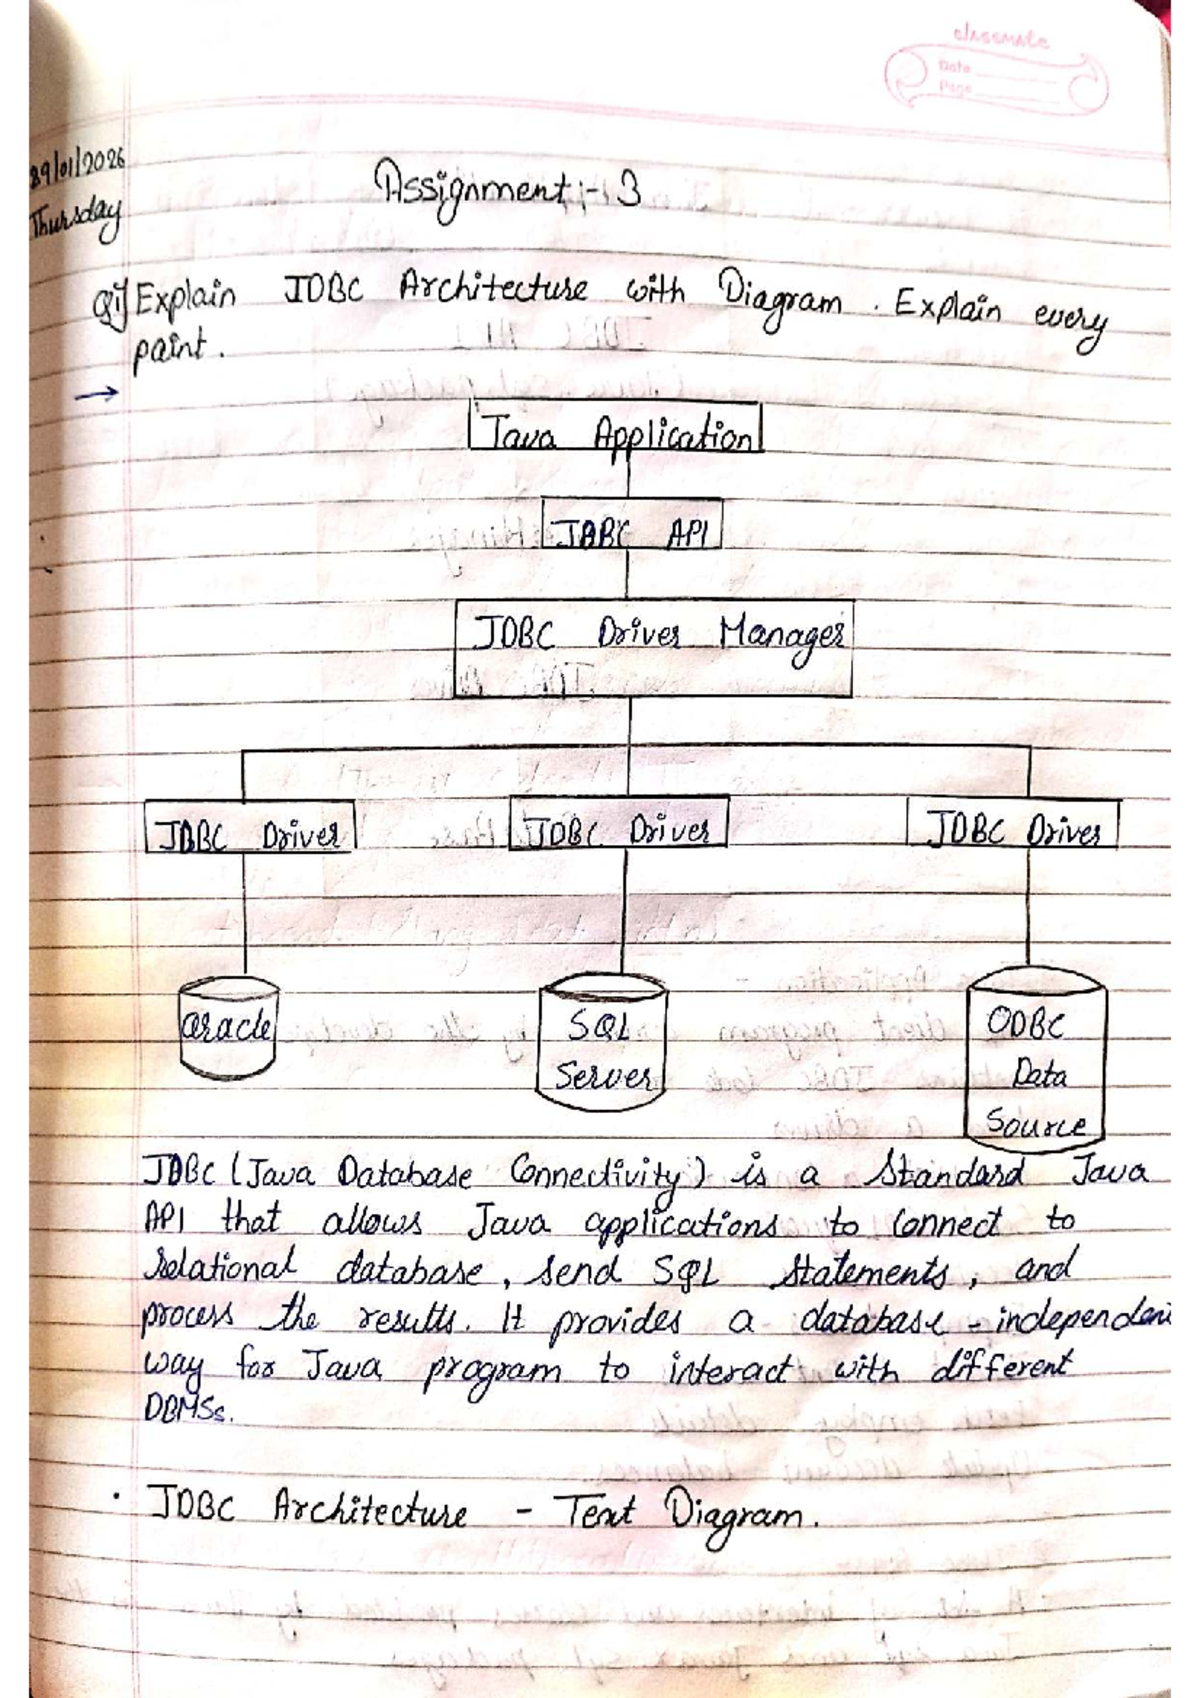 classmate
Date
Page
29/01/2026
Thursday
Assignment:- 3
Q1) Explain JDBC Architecture with Diagram. Explain every
point.
→
Java Application
JDBC API
JDBC Driver Manager
JDBC Driver JDBC Driver JDBC Driver
Oracle
SQL
Server
ODBC
Data
Source
JDBC (Java Database Connectivity) is a Standard Java
API that allows Java applications to Connect to
relational database, send SQL Statements, and
process the results. It provides a database - independent
way for Java program to interact with different
DBMSs.
• JDBC Architecture - Text Diagram.